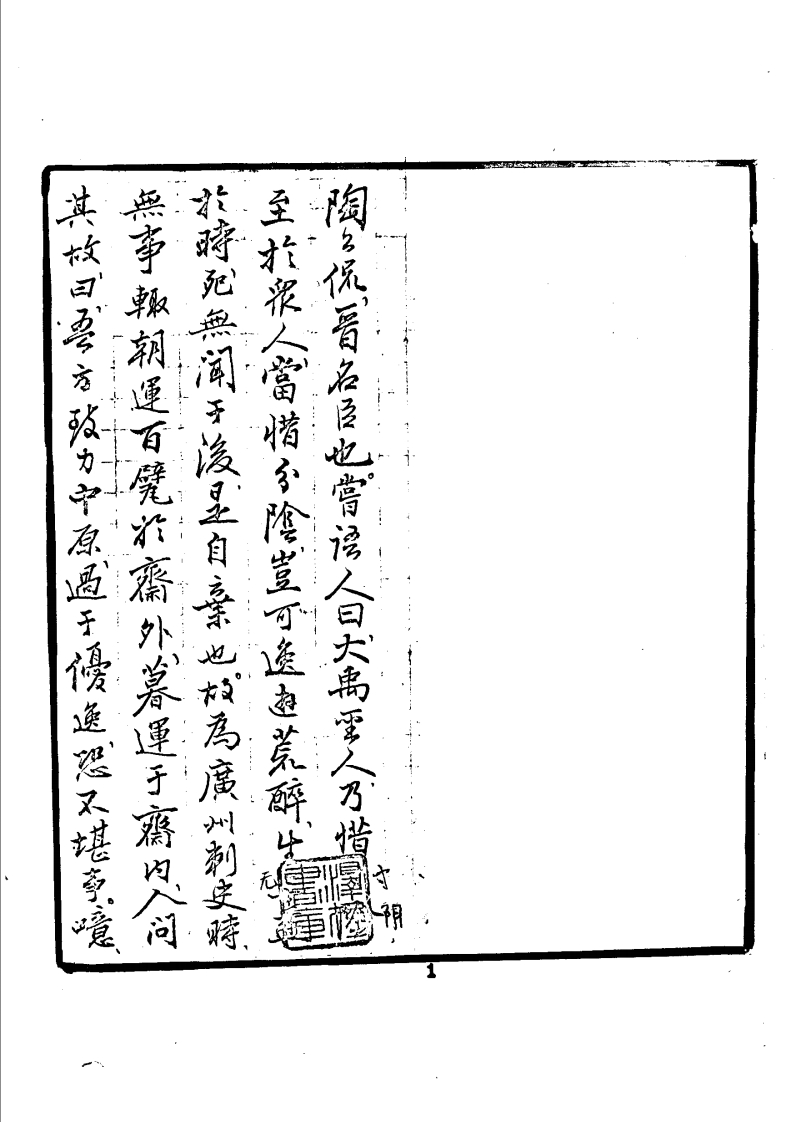 陶公侃、晉名臣也。嘗語人曰、大禹聖人、乃惜寸阴、
至於眾人、當惜分陰、豈可逸遊荒醉、生无益
於時、死無聞于後、是自棄也。故為廣州刺史時、
無事輙朝運百甓於齋外、暮運于齋内、人問
其故、曰、吾方致力中原、過于優逸、恐不堪事。噫、
1